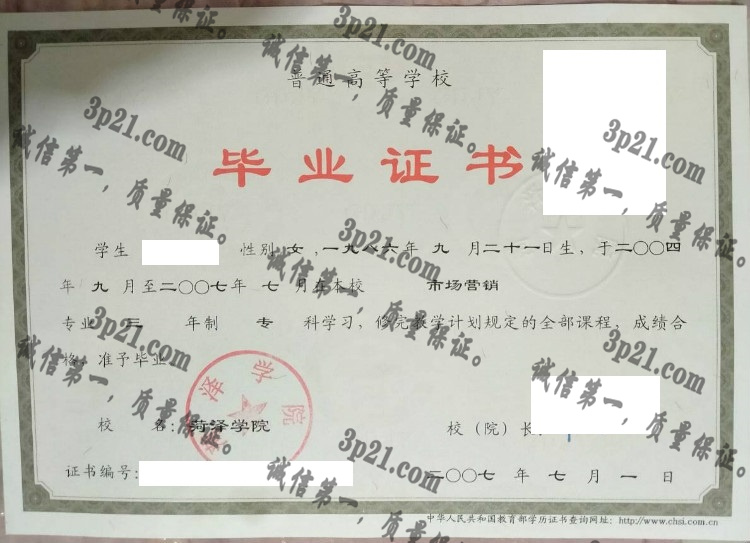 普通高等学校
毕业证书
学生 性别 女 ,一九八六年 九 月二十一日生，于二〇〇四
年 九 月至二〇〇七年 七 月在本校 市场营销
专业 三 年制 专 科学习，修完教学计划规定的全部课程，成绩合
格，准予毕业
校 名：菏泽学院 校（院）长：
证书编号： 二〇〇七 年 七 月 一 日
中华人民共和国教育部学历证书查询网址：http://www.chsi.com.cn
泽学院
3p21.com
诚信第一，质量保证。
3p21.com
诚信第一，质量保证。
3p21.com
诚信第一，质量保证。
3p21.com
诚信第一，质量保证。
3p21.com
诚信第一，质量保证。
3p21.com
诚信第一，质量保证。
3p21.com
诚信第一，质量保证。